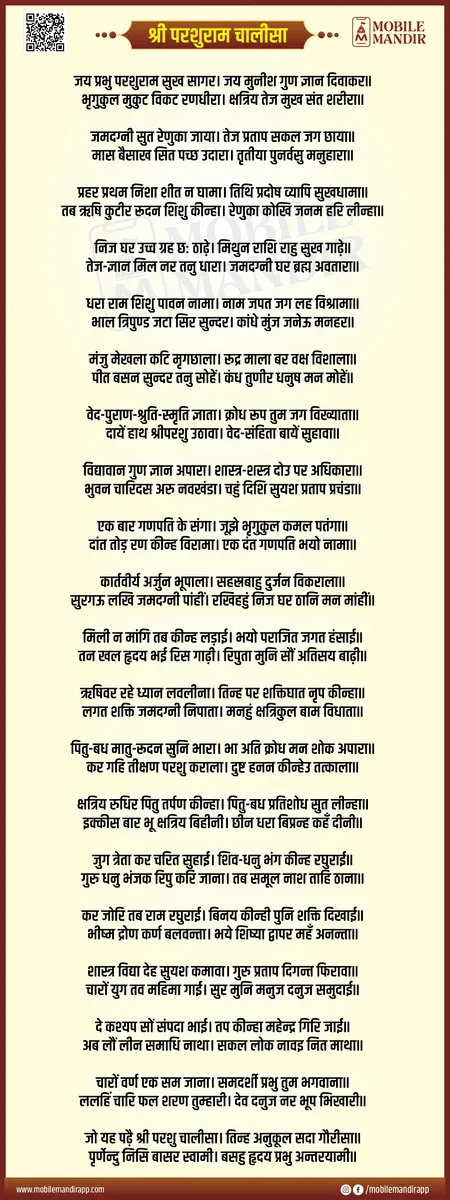 श्री परशुराम चालीसा
MOBILE
MANDIR
जय प्रभु परशुराम सुख सागर। जय मुनीश गुण ज्ञान दिवाकर॥
भृगुकुल मुकुट विकट रणधीरा। क्षत्रिय तेज मुख संत शरीरा॥
जमदग्नी सुत रेणुका जाया। तेज प्रताप सकल जग छाया॥
मास बैसाख सित पच्छ उदारा। तृतीया पुनर्वसु मनुहारा॥
प्रहर प्रथम निशा शीत न घामा। तिथि प्रदोष व्यापि सुखधामा॥
तब ऋषि कुटीर रूदन शिशु कीन्हा। रेणुका कोखि जनम हरि लीन्हा॥
निज घर उच्च ग्रह छः ठाढ़े। मिथुन राशि राहु सुख गाढ़े॥
तेज-ज्ञान मिल नर तनु धारा। जमदग्नी घर ब्रह्म अवतारा॥
धरा राम शिशु पावन नामा। नाम जपत जग लह विश्रामा॥
भाल त्रिपुण्ड जटा सिर सुन्दर। कांधे मुंज जनेऊ मनहर॥
मंजु मेखला कटि मृगछाला। रूद्र माला बर वक्ष विशाला॥
पीत बसन सुन्दर तनु सोहें। कंध तुणीर धनुष मन मोहें॥
वेद-पुराण-श्रुति-स्मृति ज्ञाता। क्रोध रूप तुम जग विख्याता॥
दायें हाथ श्रीपरशु उठावा। वेद-संहिता बायें सुहावा॥
विद्यावान गुण ज्ञान अपारा। शास्त्र-शस्त्र दोउ पर अधिकारा॥
भुवन चारिदस अरु नवखंडा। चहुं दिशि सुयश प्रताप प्रचंडा॥
एक बार गणपति के संगा। जूझे भृगुकुल कमल पतंगा॥
दांत तोड़ रण कीन्ह विरामा। एक दंत गणपति भयो नामा॥
कार्तवीर्य अर्जुन भूपाला। सहस्रबाहु दुर्जन विकराला॥
सुरगऊ लखि जमदग्नी पांहीं। रखिहहुं निज घर ठानि मन मांहीं॥
मिली न मांगि तब कीन्ह लड़ाई। भयो पराजित जगत हंसाई॥
तन खल हृदय भई रिस गाढ़ी। रिपुता मुनि सौं अतिसय बाढ़ी॥
ऋषिवर रहे ध्यान लवलीना। तिन्ह पर शक्तिघात नृप कीन्हा॥
लगत शक्ति जमदग्नी निपाता। मनहुं क्षत्रिकुल बाम विधाता॥
पितु-बध मातु-रूदन सुनि भारा। भा अति क्रोध मन शोक अपारा॥
कर गहि तीक्षण परशु कराला। दुष्ट हनन कीन्हेउ तत्काला॥
क्षत्रिय रुधिर पितु तर्पण कीन्हा। पितु-बध प्रतिशोध सुत लीन्हा॥
इक्कीस बार भू क्षत्रिय बिहीनी। छीन धरा बिप्रन्ह कहँ दीनी॥
जुग त्रेता कर चरित सुहाई। शिव-धनु भंग कीन्ह रघुराई॥
गुरु धनु भंजक रिपु करि जाना। तब समूल नाश ताहि ठाना॥
कर जोरि तब राम रघुराई। बिनय कीन्ही पुनि शक्ति दिखाई॥
भीष्म द्रोण कर्ण बलवन्ता। भये शिष्या द्वापर महँ अनन्ता॥
शास्त्र विद्या देह सुयश कमावा। गुरु प्रताप दिगन्त फिरावा॥
चारों युग तव महिमा गाई। सुर मुनि मनुज दनुज समुदाई॥
दे कश्यप सों संपदा भाई। तप कीन्हा महेन्द्र गिरि जाई॥
अब लौं लीन समाधि नाथा। सकल लोक नावइ नित माथा॥
चारों वर्ण एक सम जाना। समदर्शी प्रभु तुम भगवाना॥
ललहिं चारि फल शरण तुम्हारी। देव दनुज नर भूप भिखारी॥
जो यह पढ़ै श्री परशु चालीसा। तिन्ह अनुकूल सदा गौरीसा॥
पृर्णेन्दु निसि बासर स्वामी। बसहु हृदय प्रभु अन्तरयामी॥
www.mobilemandirapp.com
/mobilemandirapp